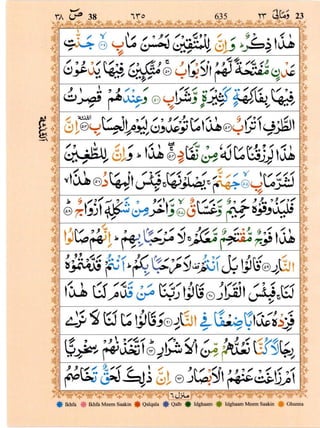 ٣٨ ص 38 ٦٣٥ 635 ٢٣ وَمَالِیَ 23
هٰذَا ذِكْرٌ ؕ وَ اِنَّ لِلْمُتَّقِیْنَ لَحُسْنَ مَاٰبٍ ﴿۴۹﴾ جَنّٰتِ
عَدْنٍ مُّفَتَّحَةً لَّهُمُ الْاَبْوَابُ ﴿۵۰﴾ مُتَّكِـِٕیْنَ فِیْهَا یَدْعُوْنَ
فِیْهَا بِفَاكِهَةٍ كَثِیْرَةٍ وَّ شَرَابٍ ﴿۵۱﴾ وَ عِنْدَهُمْ قٰصِرٰتُ
الطَّرْفِ اَتْرَابٌ ﴿۵۲﴾ هٰذَا مَا تُوْعَدُوْنَ لِیَوْمِ الْحِسَابِ ﴿۵۳﴾ اِنَّ
هٰذَا لَرِزْقُنَا مَا لَهٗ مِنْ نَّفَادٍ ﴿۵۴﴾ هٰذَا ؕ وَ اِنَّ لِلطّٰغِیْنَ
لَشَرَّ مَاٰبٍ ﴿۵۵﴾ جَهَنَّمَ ۚ یَصْلَوْنَهَا ۚ فَبِئْسَ الْمِهَادُ ﴿۵۶﴾ هٰذَا ۙ
فَلْیَذُوْقُوْهُ حَمِیْمٌ وَّ غَسَّاقٌ ﴿۵۷﴾ وَّ اٰخَرُ مِنْ شَكْلِهٖۤ اَزْوَاجٌ ﴿۵۸﴾
هٰذَا فَوْجٌ مُّقْتَحِمٌ مَّعَكُمْ ۚ لَا مَرْحَبًۢا بِهِمْ ؕ اِنَّهُمْ صَالُوا
النَّارِ ﴿۵۹﴾ قَالُوْا بَلْ اَنْتُمْ ۫ لَا مَرْحَبًۢا بِكُمْ ؕ اَنْتُمْ قَدَّمْتُمُوْهُ
لَنَا ۚ فَبِئْسَ الْقَرَارُ ﴿۶۰﴾ قَالُوْا رَبَّنَا مَنْ قَدَّمَ لَنَا هٰذَا
فَزِدْهُ عَذَابًا ضِعْفًا فِی النَّارِ ﴿۶۱﴾ وَ قَالُوْا مَا لَنَا لَا نَرٰی
رِجَالًا كُنَّا نَعُدُّهُمْ مِّنَ الْاَشْرَارِ ﴿۶۲﴾ اَتَّخَذْنٰهُمْ سِخْرِیًّا
اَمْ زَاغَتْ عَنْهُمُ الْاَبْصَارُ ﴿۶۳﴾ اِنَّ ذٰلِكَ لَحَقٌّ تَخَاصُمُ
منزل ٦
Ikhfa Ikhfa Meem Saakin Qalqala Qalb Idghaam Idghaam Meem Saakin Ghunna